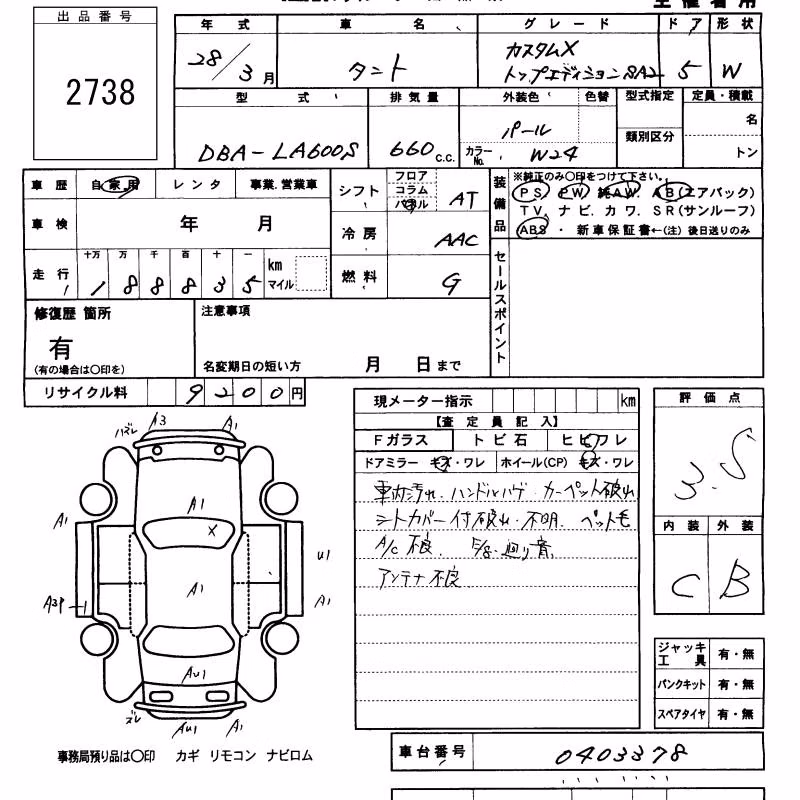 出品番号
2738
年式 車名 グレード ドア 形状
28/3月 タント カスタムX
トップエディションSA2 5 W
型式 排気量 外装色 色替 型式指定 定員・積載
DBA-LA600S 660c.c. パール
カラーNo. W24 類別区分 名
トン
車歴 自家用 レンタ 事業.営業車
シフト フロア コラム パネル AT
装備品 ※純正のみ〇印をつけて下さい。
PS. PW. 純AW. AB(エアバック)
TV. ナビ. カワ. SR(サンルーフ)
ABS ・ 新車保証書←(注) 後日送りのみ
車検 年 月
冷房 AAC
走行 十万 万 千 百 十 一
188835 km マイル
燃料 G
セールスポイント
修復歴 箇所
有
(有の場合は〇印を)
注意事項
名変期日の短い方 月 日まで
リサイクル料 9200円
現メーター指示 km
【査定員記入】
Fガラス トビ石 ヒビワレ
ドアミラー キズ・ワレ ホイール(CP) キズ・ワレ
車内汚れ. ハンドルハゲ. カーペット破れ
シートカバー付破れ. 不明. ペット毛
A/C 不良. 廻り音.
アンテナ不良
評価点
3.5
内装 外装
C B
ジャッキ
工具 有・無
パンクキット 有・無
スペアタイヤ 有・無
ハズレ A3 A1
A1
X
A1 U1
A1
A3P A1
AU1
ズレ AU1 A1
事務局預り品は〇印 カギ リモコン ナビロム
車台番号 0403378